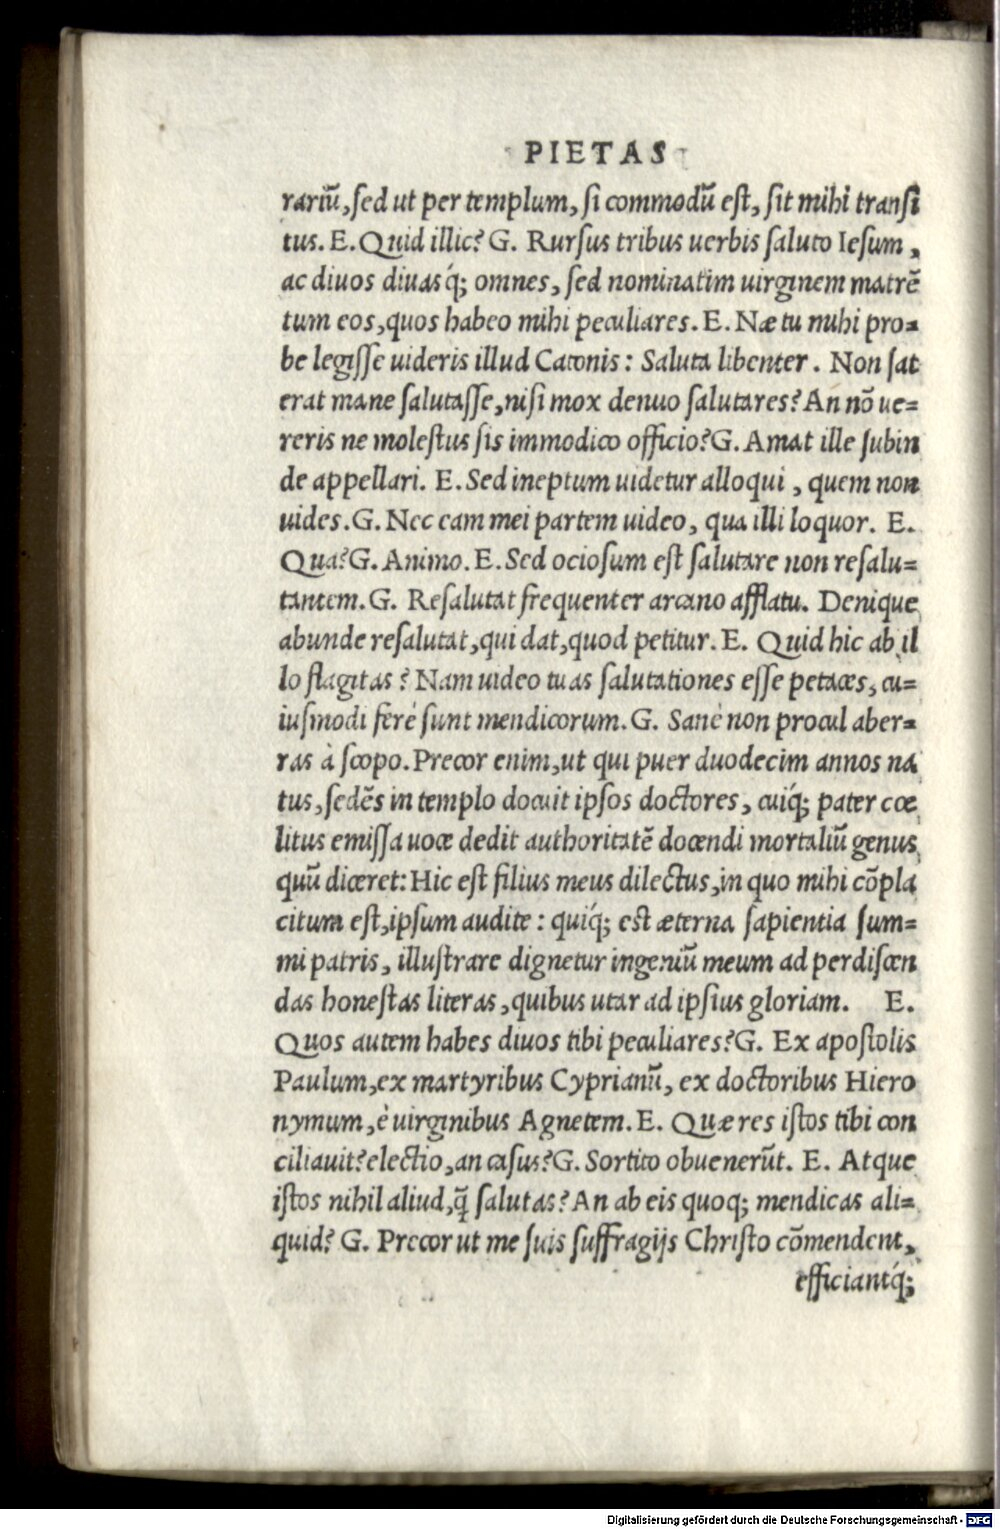 PIETAS
rariũ, sed ut per templum, si commodũ est, sit mihi transi
tus. E. Quid illic? G. Rursus tribus uerbis saluto Iesum,
ac diuos diuasq́; omnes, sed nominatim uirginem matrẽ
tum eos, quos habeo mihi peculiares. E. Næ tu mihi pro=
be legisse uideris illud Catonis: Saluta libenter. Non sat
erat mane salutasse, nisi mox denuo salutares? An nõ ue=
reris ne molestus sis immodico officio? G. Amat ille subin
de appellari. E. Sed ineptum uidetur alloqui, quem non
uides. G. Nec eam mei partem uideo, qua illi loquor. E.
Qua? G. Animo. E. Sed ociosum est salutare non resalu=
tantem. G. Resalutat frequenter arcano afflatu. Denique
abunde resalutat, qui dat, quod petitur. E. Quid hic ab il
lo flagitas? Nam uideo tuas salutationes esse petaces, cu=
iusmodi ferè sunt mendicorum. G. Sanè non procul aber=
ras à scopo. Precor enim, ut qui puer duodecim annos na
tus, sedẽs in templo docuit ipsos doctores, cuiq́; pater cœ
litus emissa uoce dedit authoritatẽ docendi mortaliũ genus
quũ diceret: Hic est filius meus dilectus, in quo mihi cõpla
citum est, ipsum audite: quiq́; est æterna sapientia sum=
mi patris, illustrare dignetur ingeniũ meum ad perdiscen
das honestas literas, quibus utar ad ipsius gloriam. E.
Quos autem habes diuos tibi peculiares? G. Ex apostolis
Paulum, ex martyribus Cyprianũ, ex doctoribus Hiero
nymum, è uirginibus Agnetem. E. Quæ res istos tibi con
ciliauit? electio, an casus? G. Sortito obuenerũt. E. Atque
istos nihil aliud, q̃ salutas? An ab eis quoq; mendicas ali=
quid? G. Precor ut me suis suffragijs Christo cõmendent,
efficiantq́;
Digitalisierung gefördert durch die Deutsche Forschungsgemeinschaft - DFG